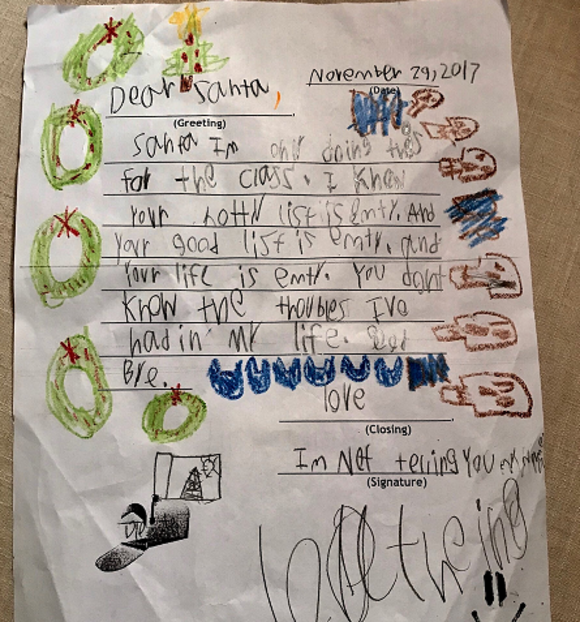 November 29, 2017
(Date)
Dear Santa,
(Greeting)
Santa Im only doing this
for the class. I know
your notty list is emty. And
your good list is emty. and
Your life is emty. You dont
know the troubles Ive
had in my life. Good
Bye.
love
(Closing)
Im Not telling you my name
(Signature)